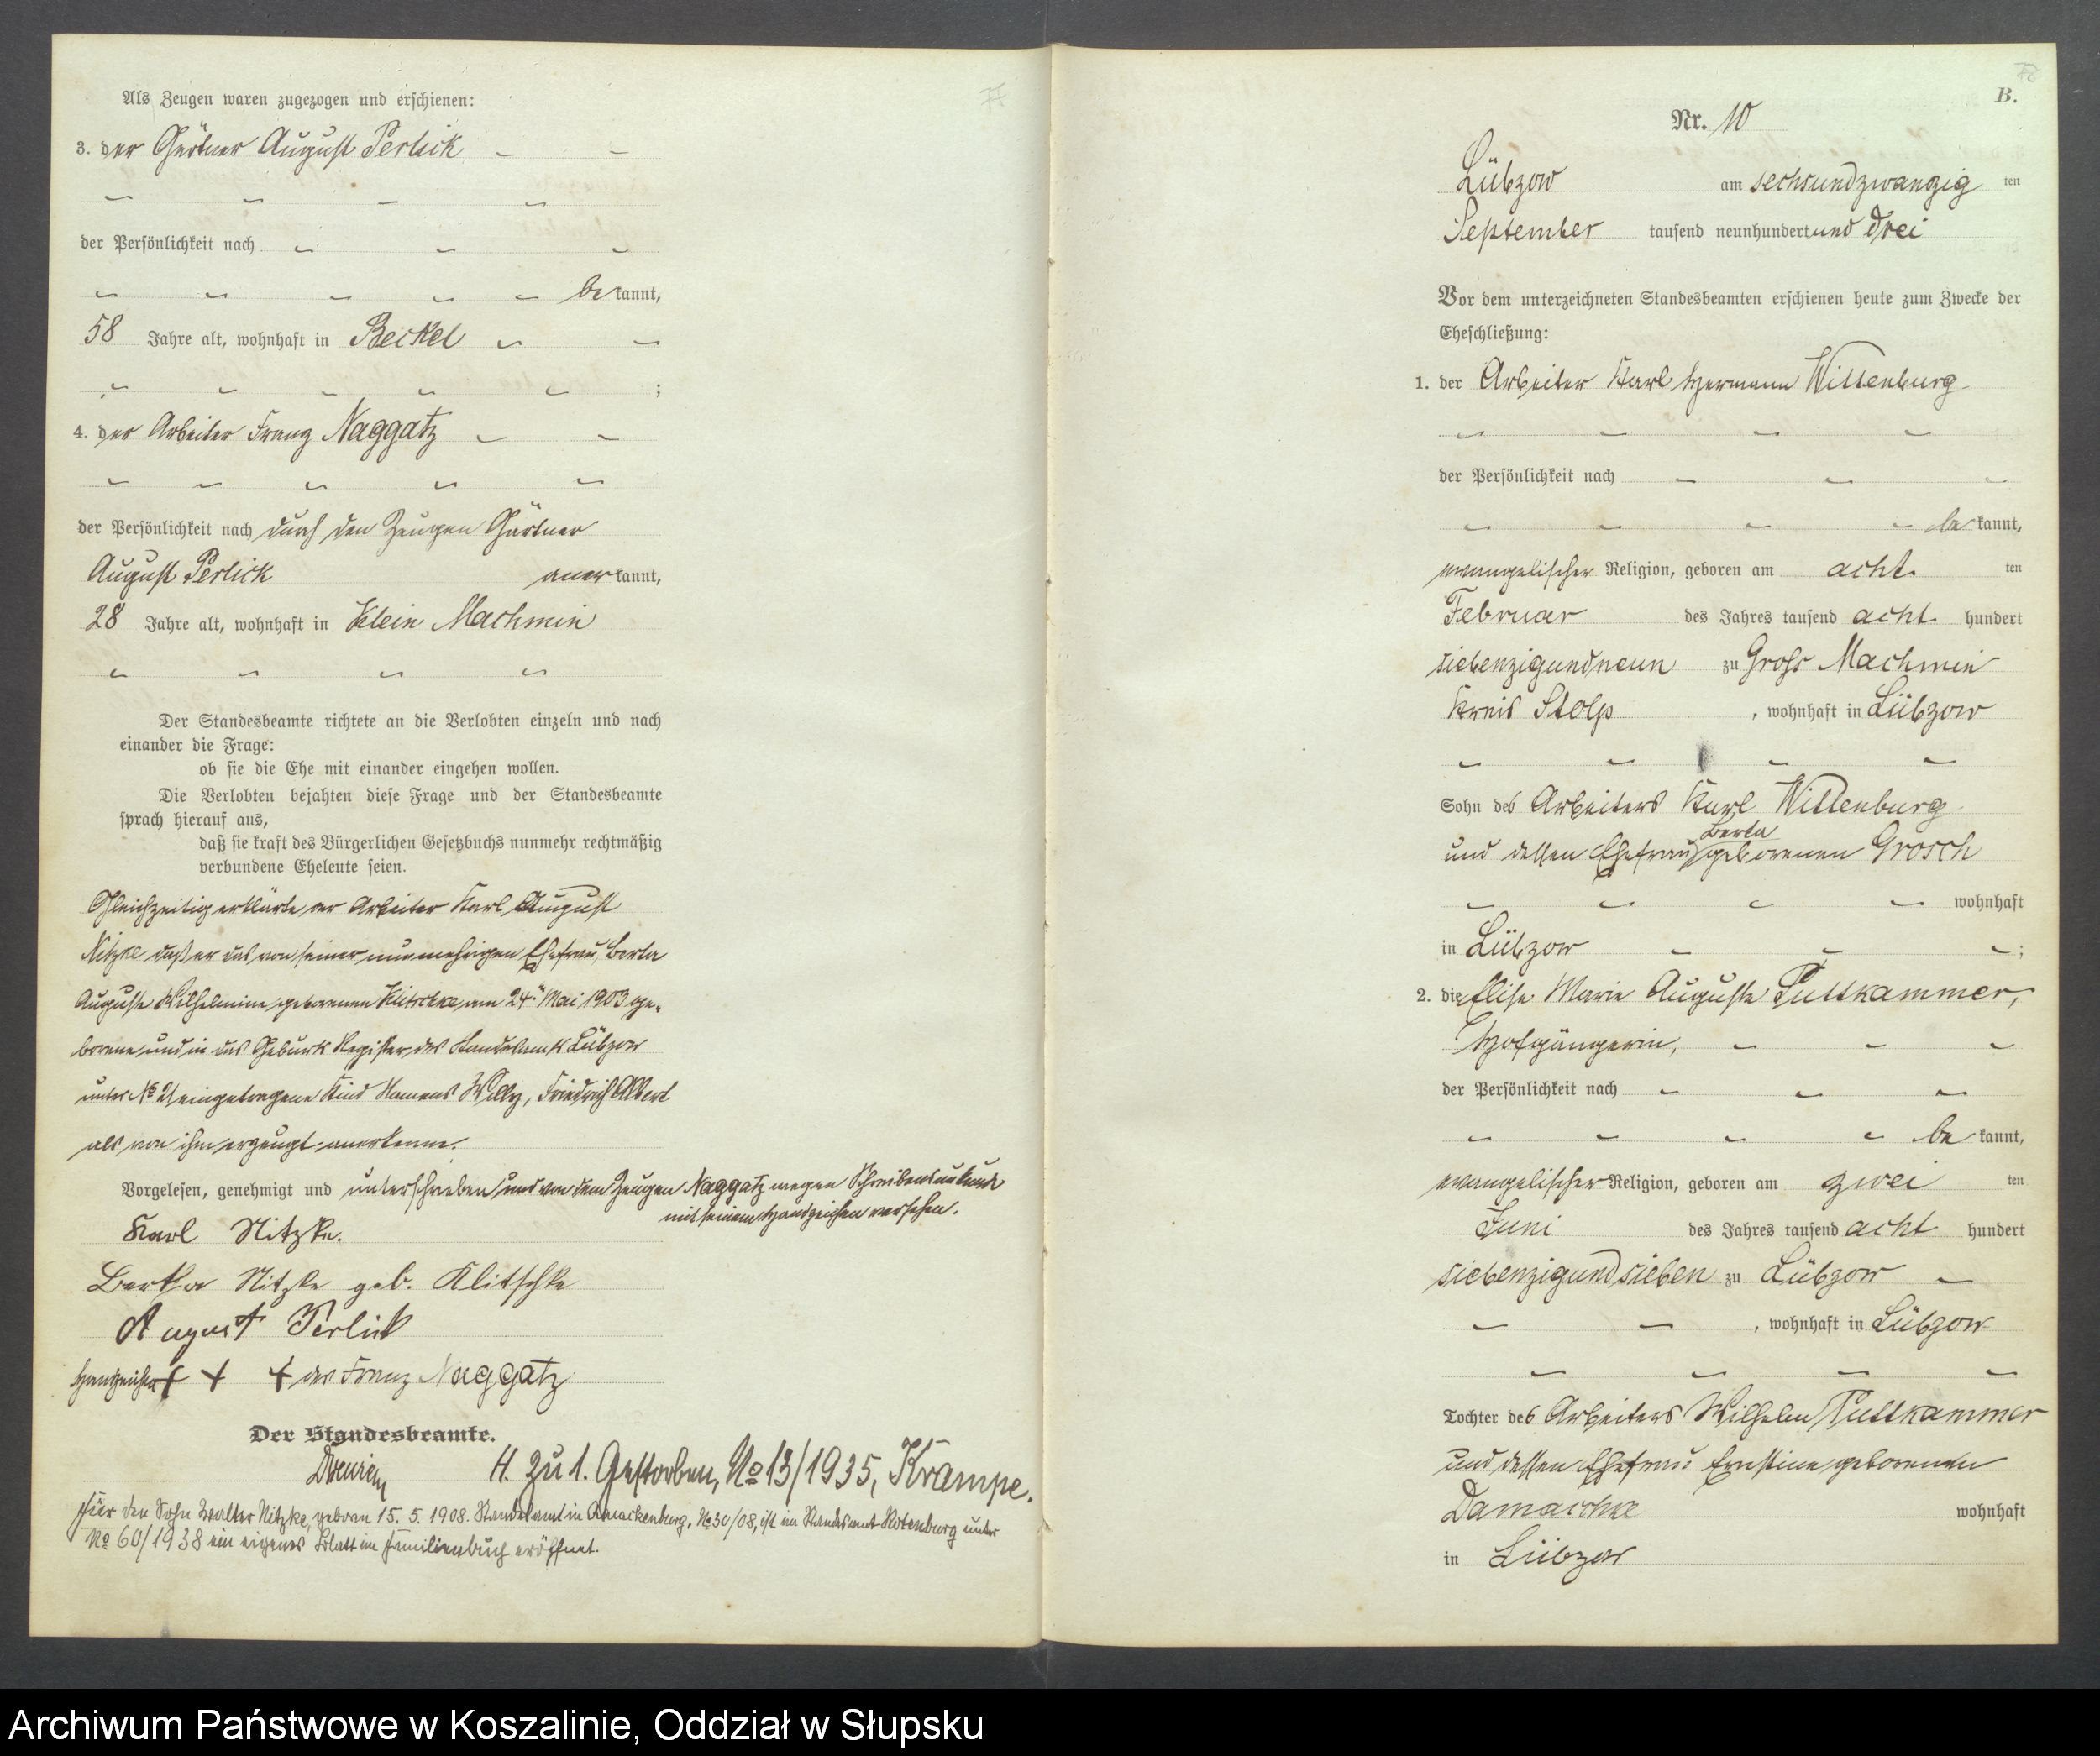 Als Zeugen waren zugezogen und erschienen:
77
3. der Gärtner August Perlick
der Persönlichkeit nach
bekannt,
58 Jahre alt, wohnhaft in Beckel
;
4. der Arbeiter Franz Naggatz
der Persönlichkeit nach durch den Zeugen Gärtner
August Perlick anerkannt,
28 Jahre alt, wohnhaft in Klein Machmin
Der Standesbeamte richtete an die Verlobten einzeln und nach
einander die Frage:
ob sie die Ehe mit einander eingehen wollen.
Die Verlobten bejahten diese Frage und der Standesbeamte
sprach hierauf aus,
daß sie kraft des Bürgerlichen Gesetzbuchs nunmehr rechtmäßig
verbundene Eheleute seien.
Gleichzeitig erklärte der Arbeiter Karl August
Nitzke daß er das von seiner nunmehrigen Ehefrau, Berta
Auguste Wilhelmine, geborenen Klitschke, am 24. Mai 1903 ge-
borene, und in das Geburts Register des Standesamts Lübzow
unter No 21 eingetragene Kind Namens Willy, Friedrich Albert
als von ihm erzeugt anerkenne.
Vorgelesen, genehmigt und unterschrieben und von dem Zeugen Naggatz wegen Schreibensunkunde
mit seinem Handzeichen versehen.
Karl Nitzke.
Berta Nitzke geb. Klitschke
August Perlick
Handzeichen + + + des Franz Naggatz
Der Standesbeamte.
H. zu 1. Gestorben, No 13/1935, Krampe.
Für den Sohn Walter Nitzke, geboren 15. 5. 1908. Standesamt in No 30/08, ist im Standesamt Rotenburg unter
No 60/1938 ein eigenes Blatt im Familienbuch eröffnet.
B.
Nr. 10
Lübzow am sechsundzwanzig ten
September tausend neunhundert und drei
Vor dem unterzeichneten Standesbeamten erschienen heute zum Zwecke der
Eheschließung:
1. der Arbeiter Karl Hermann Wittenburg
der Persönlichkeit nach
bekannt,
evangelischer Religion, geboren am acht ten
Februar des Jahres tausend acht hundert
siebenzigundneun zu Groß Machmin
Kreis Stolp, wohnhaft in Lübzow
Sohn des Arbeiters Karl Wittenburg
Berta
und dessen Ehefrau geborenen Grosch
wohnhaft
in Lübzow ;
2. die Elise Marie Auguste Puttkammer,
Hofgängerin,
der Persönlichkeit nach
bekannt,
evangelischer Religion, geboren am zwei ten
Juni des Jahres tausend acht hundert
siebenzigundsieben zu Lübzow
, wohnhaft in Lübzow
Tochter des Arbeiters Wilhelm Puttkammer
und dessen Ehefrau Ernstine geborenen
Damaschke wohnhaft
in Lübzow
Archiwum Państwowe w Koszalinie, Oddział w Słupsku